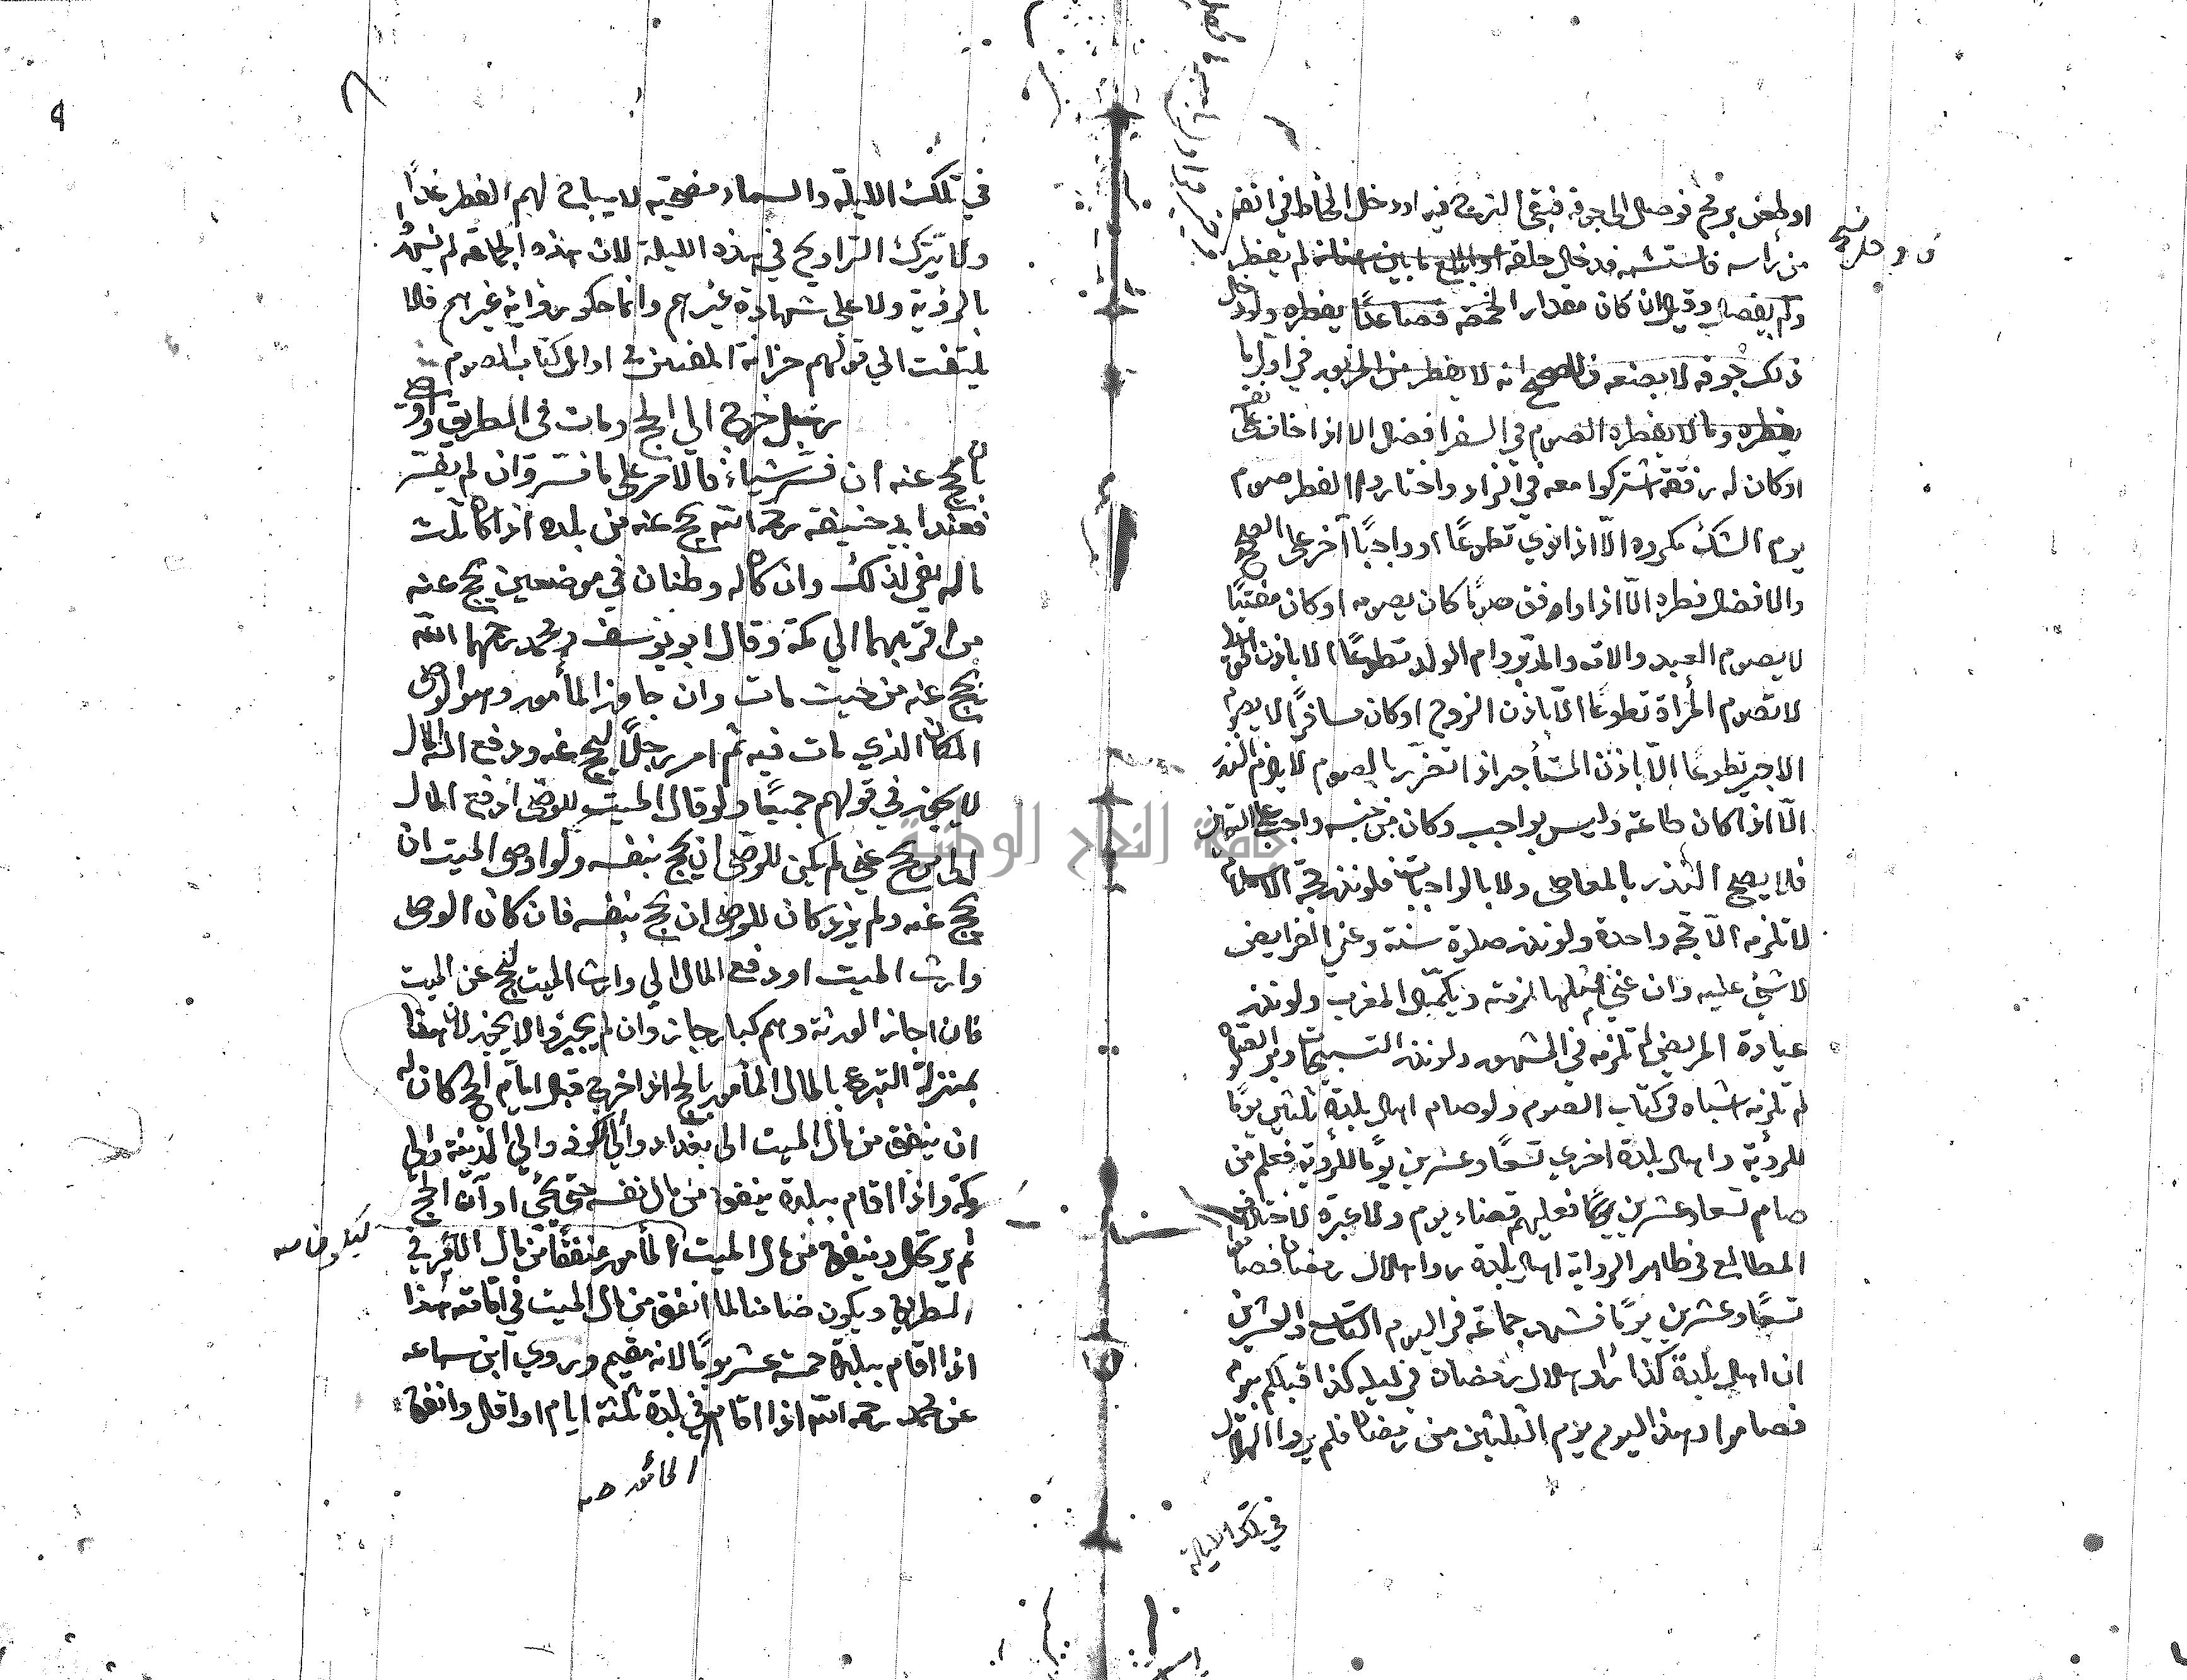 او طعن برمح فوصل الى جوفه فبقي الزج فيه او دخل المخاط في انفه
من رأسه فاستشمه فدخل حلقه او ابتلع ما بين اسنانه لم يفطر
ولم يفصل وقيل ان كان مقدار الحمصة فصاعدًا يفطره ولو دخل
ذلك جوفه لا بصنعه فالصحيح انه لا يفطر من المزبور في اوّل ما
يفطره وما لا يفطره الصوم في السفر افضل الا اذا خاف على نفسه
او كان له رفقة اشتركوا معه في الزاد واختاروا الفطر صوم
يوم الشك مكروه الّا اذا نوي تطوعًا او واجبًا آخر على الصحيح
والافضل فطره الّا اذا وافق صومًا كان يصومه او كان مفتيًا
لا يصوم العبد والامة والمدبّر وام الولد تطوعًا الا باذن المولى
لا تصوم المرأة تطوعًا الّا باذن الزوج او كان مسافرًا لا يصوم
الاجير تطوعا الّا باذن المستأجر اذا تضرّر بالصوم لا يلزم النذر
الّا اذا كان طاعة وليس بواجب وكان من جنسه واجب على التعيين
فلا يصح النذر بالمعاصي ولا بالواجبات فلو نذر حجّة الاسلام
لا تلزمه الّا حجّة واحدة ولو نذر صلوة سنة وعني الفرايض
لا شيّ عليه وان عني مثلها لزمته ويكمّل المغرب ولو نذر
عيادة المريض لم تلزمه في المشهور ولو نذر التسبيحات دبر الصلوة
لم تلزمه اشباه في كتاب الصوم ولو صام اهل بلدة ثلثين يومًا
للرؤية واهل بلدة اخري تسعًا وعشرين يومًا للرؤية فعلم من
صام تسعا وعشرين يومًا فعليهم قضاء يوم ولا عبرة لاختلاف
المطالع في ظاهر الرواية اهل بلدة راوا هلال رمضان فصاموا
تسعًا وعشرين يومًا فشهد جماعة في اليوم التاسع والعشرين
ان اهل بلدة كذا رأوا هلال رمضان في ليلة كذا قبلكم بيوم
فصاموا وهذا اليوم يوم الثلثين من رمضان فلم يروا الهلال
في تلك الليلة
في تلك الليلة والسماء مصحية لا يباح لهم الفطر غدًا
ولا يترك التراويح في هذه الليلة لان هذه الجماعة لم تشهد
بالرؤية ولا على شهادة غيرهم وانما حكوا رواية غيرهم فلا
يلتفت الي قولهم خزانة المفتين في اوائل كتاب الصوم
رجل خرج الي الحج ومات في الطريق واوصى
بان يحج عنه ان فسّر شياء فالامر على ما فسّر وان لم يفسّر
فعند ابي حنيفة رحمه الله يحج عنه من بلده اذا كان ثلث
ماله يفي لذلك وان كان له وطنان في موضعين يحج عنه
من اقربهما الي مكة وقال ابو يوسف ومحمد رحمهما الله
يحج عنه من حيث مات وان جاوز المأمور وهو الوصي
المكان الذي مات فيه ثم امر رجلًا ليحج عنه ودفع اليه المال
لا يجوز في قولهم جميعًا ولو قال الميت للوصي ادفع المال
الى من يحج عني لم يكن للوصي ان يحج بنفسه ولو اوصى الميت ان
يحج عنه ولم يزد كان للوصي ان يحج بنفسه فان كان الوصي
وارث الميت او دفع المال الي وارث الميت ليحج عن الميت
فان اجاز الورثة وهم كبار جاز وان لم يجيزوا لا يجوز لان هذا
بمنزلة التبرع بالمال المأمور بالحج اذا خرج قبل ايّام الحج كان له
ان ينفق من مال الميت الى بغداد والي الكوفة والي المدينة والي
مكة واذا اقام ببلدة ينفق من مال نفسه حتى يجئ اوآن الحج
ثم يرتحل وينفق من مال الميت المأمور منفقًا من مال الآمر في
الطريق ويكون ضامنا لما انفق من مال الميت في اقامته هذا
اذا اقام ببلدة خمسة عشر يومًا لانه مقيم وروي ابن سماعه
عن محمد رحمه الله اذا اقام في بلدة ثلثة ايام او اقل وانفق
جامعة النجاح الوطنية